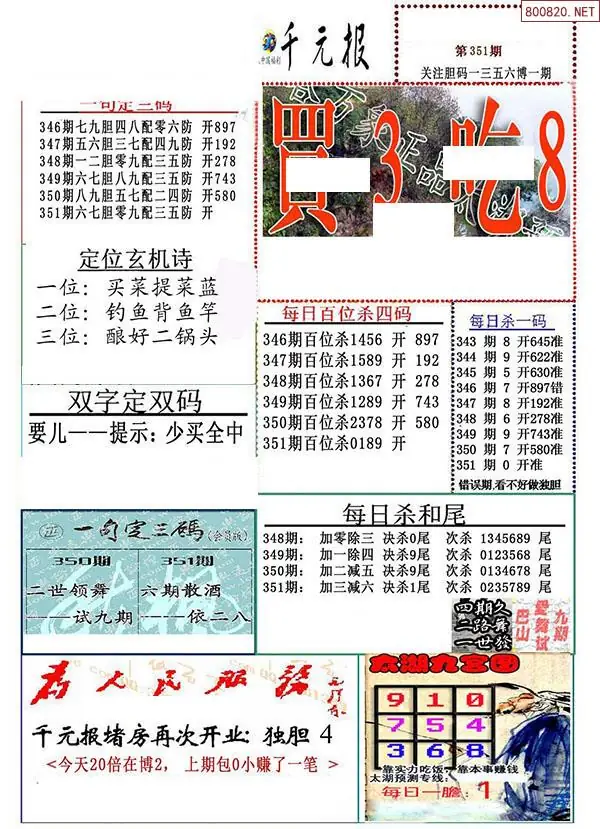 800820.NET
千元报
第351期
关注胆码一三五六博一期
一句定三码
346期七九胆四八配零六防 开897
347期五六胆三七配四九防 开192
348期一二胆零九配三五防 开278
349期六七胆八九配三五防 开743
350期八九胆五七配二四防 开580
351期六七胆零九配三五防 开
買3吃8
定位玄机诗
一位: 买菜提菜蓝
二位: 钓鱼背鱼竿
三位: 酿好二锅头
每日百位杀四码
346期百位杀1456 开 897
347期百位杀1589 开 192
348期百位杀1367 开 278
349期百位杀1289 开 743
350期百位杀2378 开 580
351期百位杀0189 开
每日杀一码
343 期 8 开645准
344 期 9 开622准
345 期 5 开630准
346 期 7 开897错
347 期 8 开192准
348 期 6 开278准
349 期 9 开743准
350 期 7 开580准
351 期 0 开准
错误期,看不好做独胆
双字定双码
要儿——提示: 少买全中
一句定三碼(会员版)
350期
二世领舞
——试九期
351期
六期散酒
——依二八
每日杀和尾
348期: 加零除三 决杀0尾 次杀 1345689 尾
349期: 加一除四 决杀9尾 次杀 0123568 尾
350期: 加二减五 决杀9尾 次杀 0134678 尾
351期: 加三减六 决杀1尾 次杀 0235789 尾
四期久
二路舞
一世發
九期
愛舞试
巴山
為人民服務
千元报堵房再次开业: 独胆 4
<今天20倍在博2, 上期包0小赚了一笔 >
太湖九宫图
9 1 0
7 5 4
3 6 8
靠实力吃饭, 靠本事赚钱
太湖预测专线:
每日一膽: 1